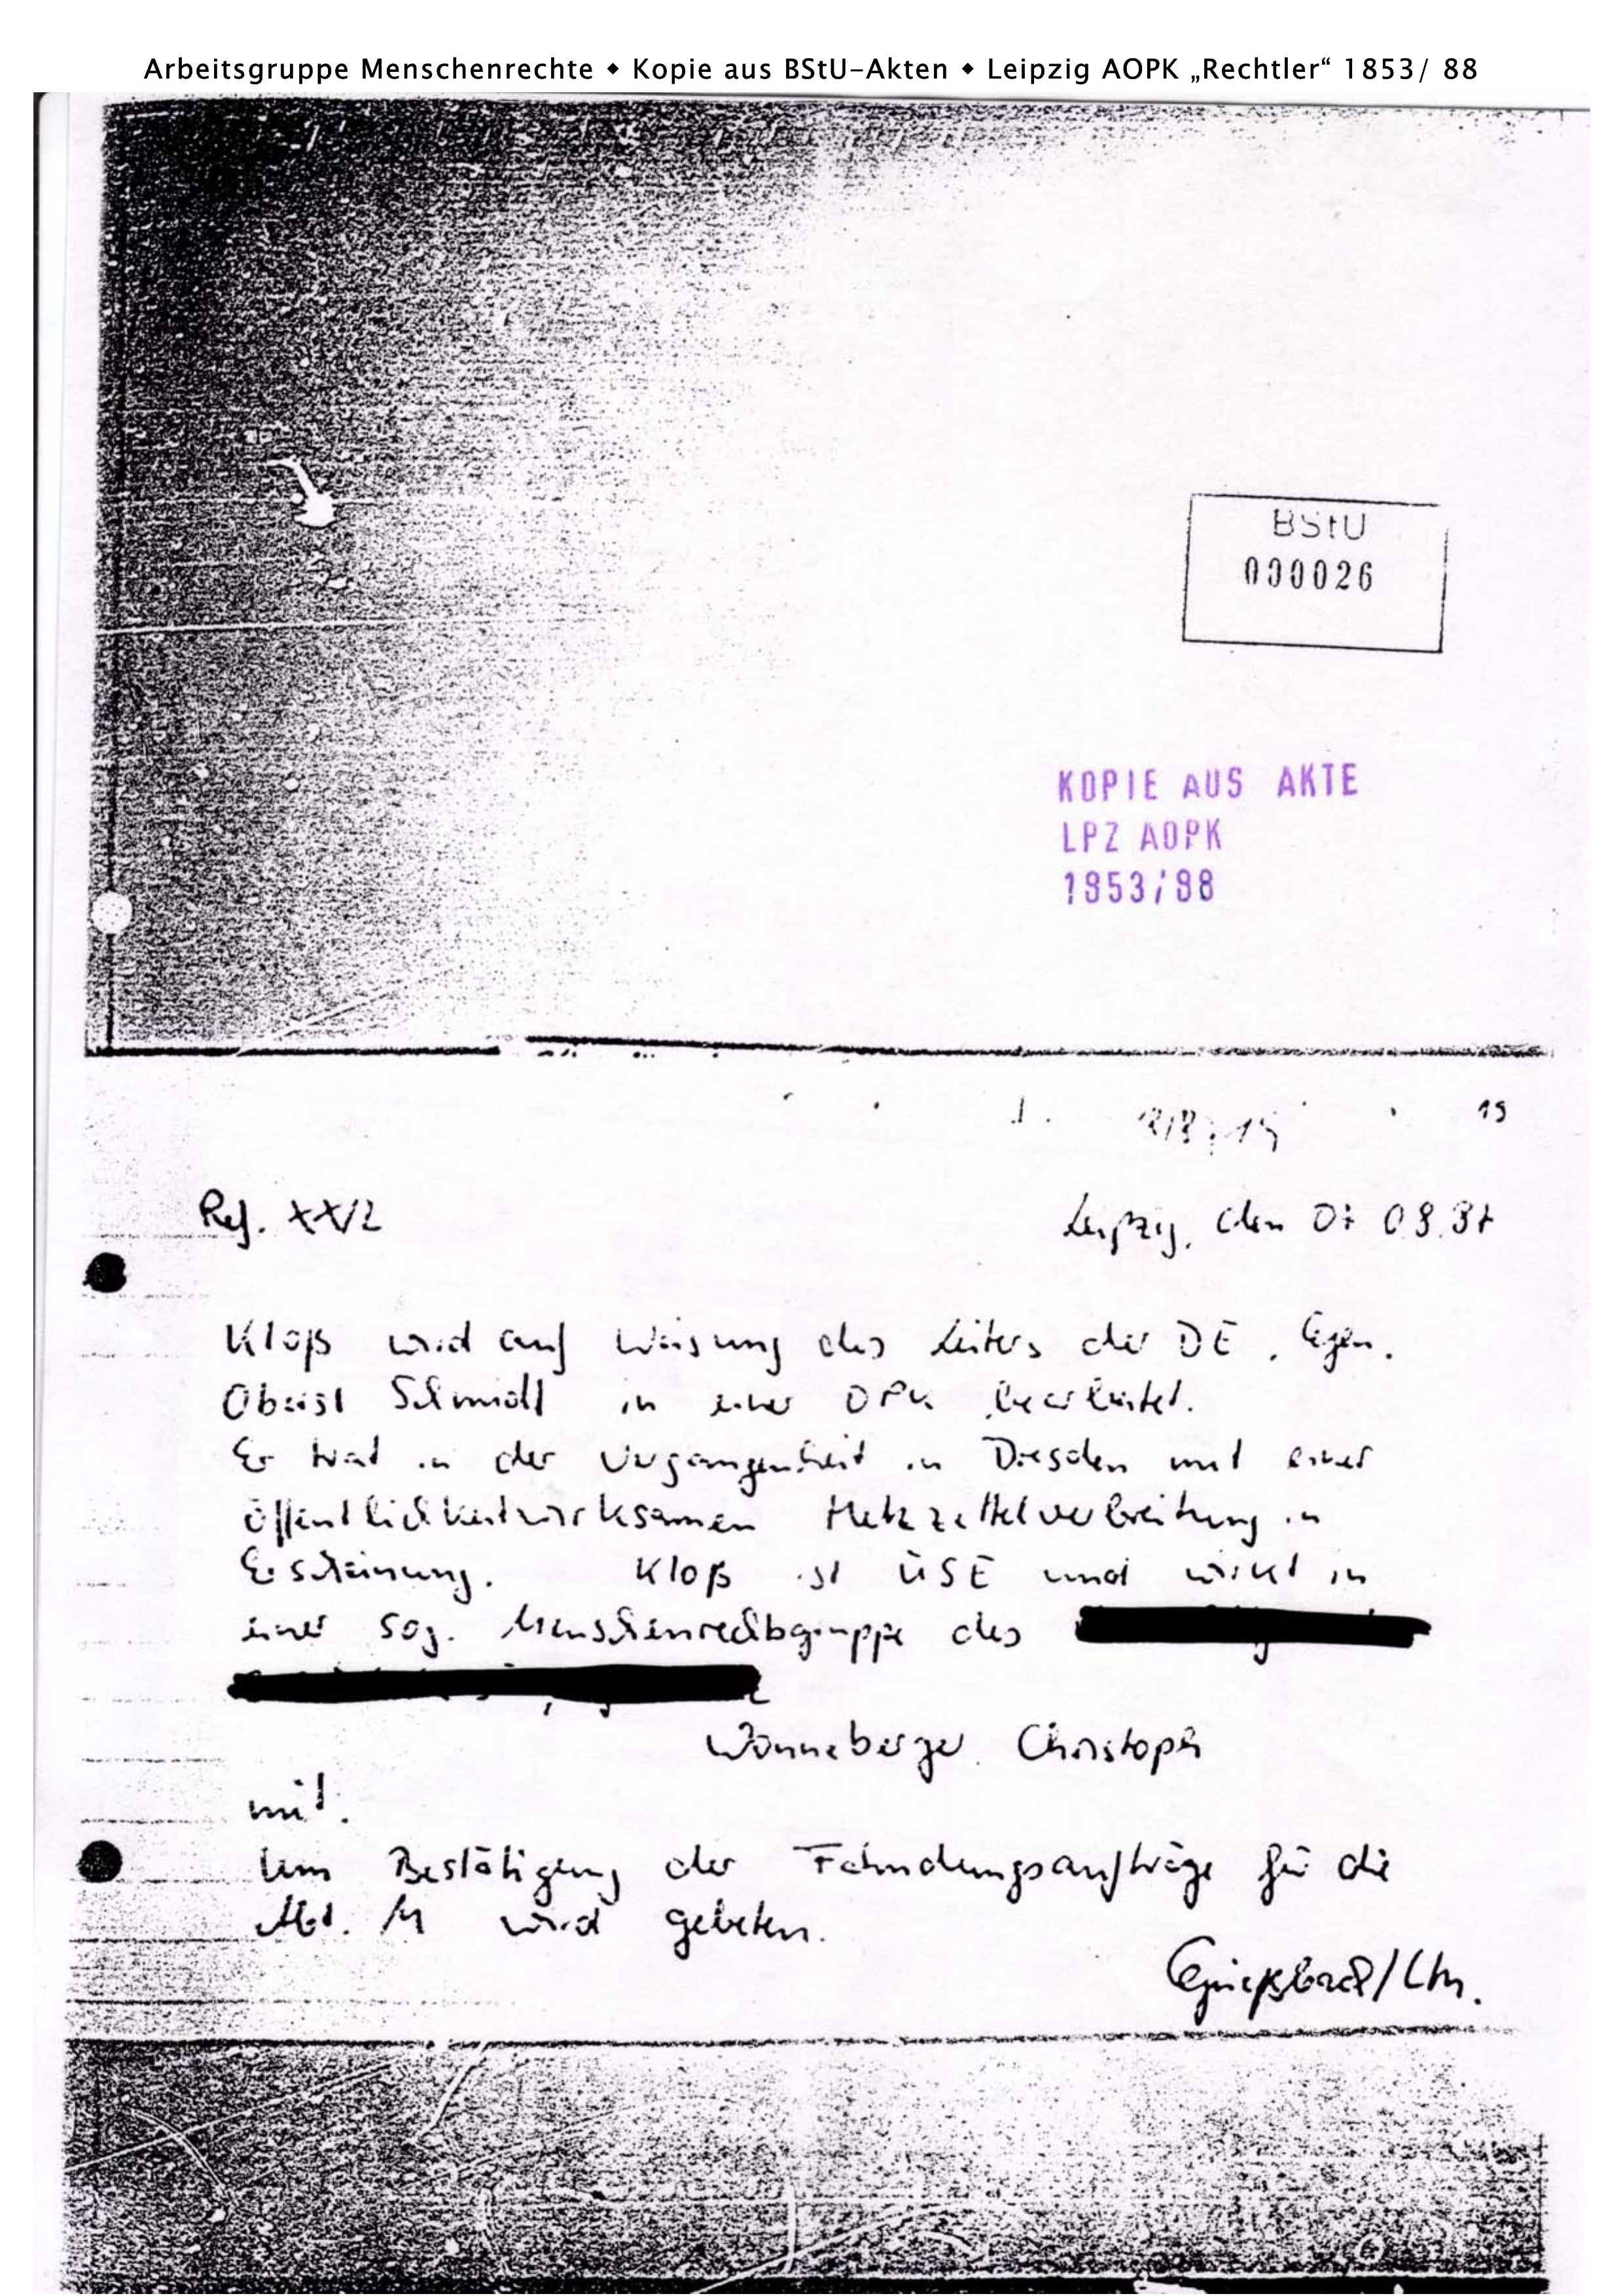 Arbeitsgruppe Menschenrechte ◆ Kopie aus BStU-Akten ◆ Leipzig AOPK „Rechtler“ 1853/ 88
BStU
000026
KOPIE AUS AKTE
LPZ AOPK
1853/88
19
Ref. XX/2
Leipzig, den 07 08.87
Kloß wird auf Weisung des Leiters der DE, Gen.
Oberst Schmidt in einer OPK bearbeitet.
Er trat in der Vergangenheit in Dresden mit einer
öffentlichkeitwirksamen Hetzzettelverbreitung in
Erscheinung. Kloß ist ÜSE und wirkt in
einer sog. Menschenrechtsgruppe des
Wonneberger, Christoph
mit.
Um Bestätigung der Fahndungsaufträge für die
Abt. M wird gebeten.
/Ltn.